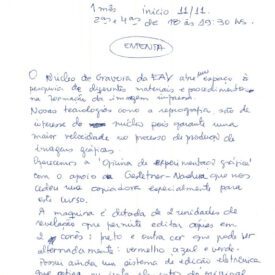 1 mês início 11/11.
2ªs e 4ªs de 18 às 19:30 hs.
EMENTA
O Núcleo de Gravura da EAV abre seu espaço à
pesquisa de diferentes materiais e procedimentos
na formação da imagem impressa.
Novas tecnologias como a reprografia são de
interesse do núcleo pois garante uma
maior velocidade no processo de produção de
imagens gráficas.
Oferecemos a "Oficina de experimentação gráfica"
com o apoio da Gestetner-Nashua que nos
cedeu uma copiadora especialmente para
este curso.
A maquina é dotada de 2 unidades de
revelação que permite editar cópias em
2 cores: preto e outra cor que pode ser
alternadamente: vermelho, azul e verde.
Possui ainda um sistema de edição eletrônica